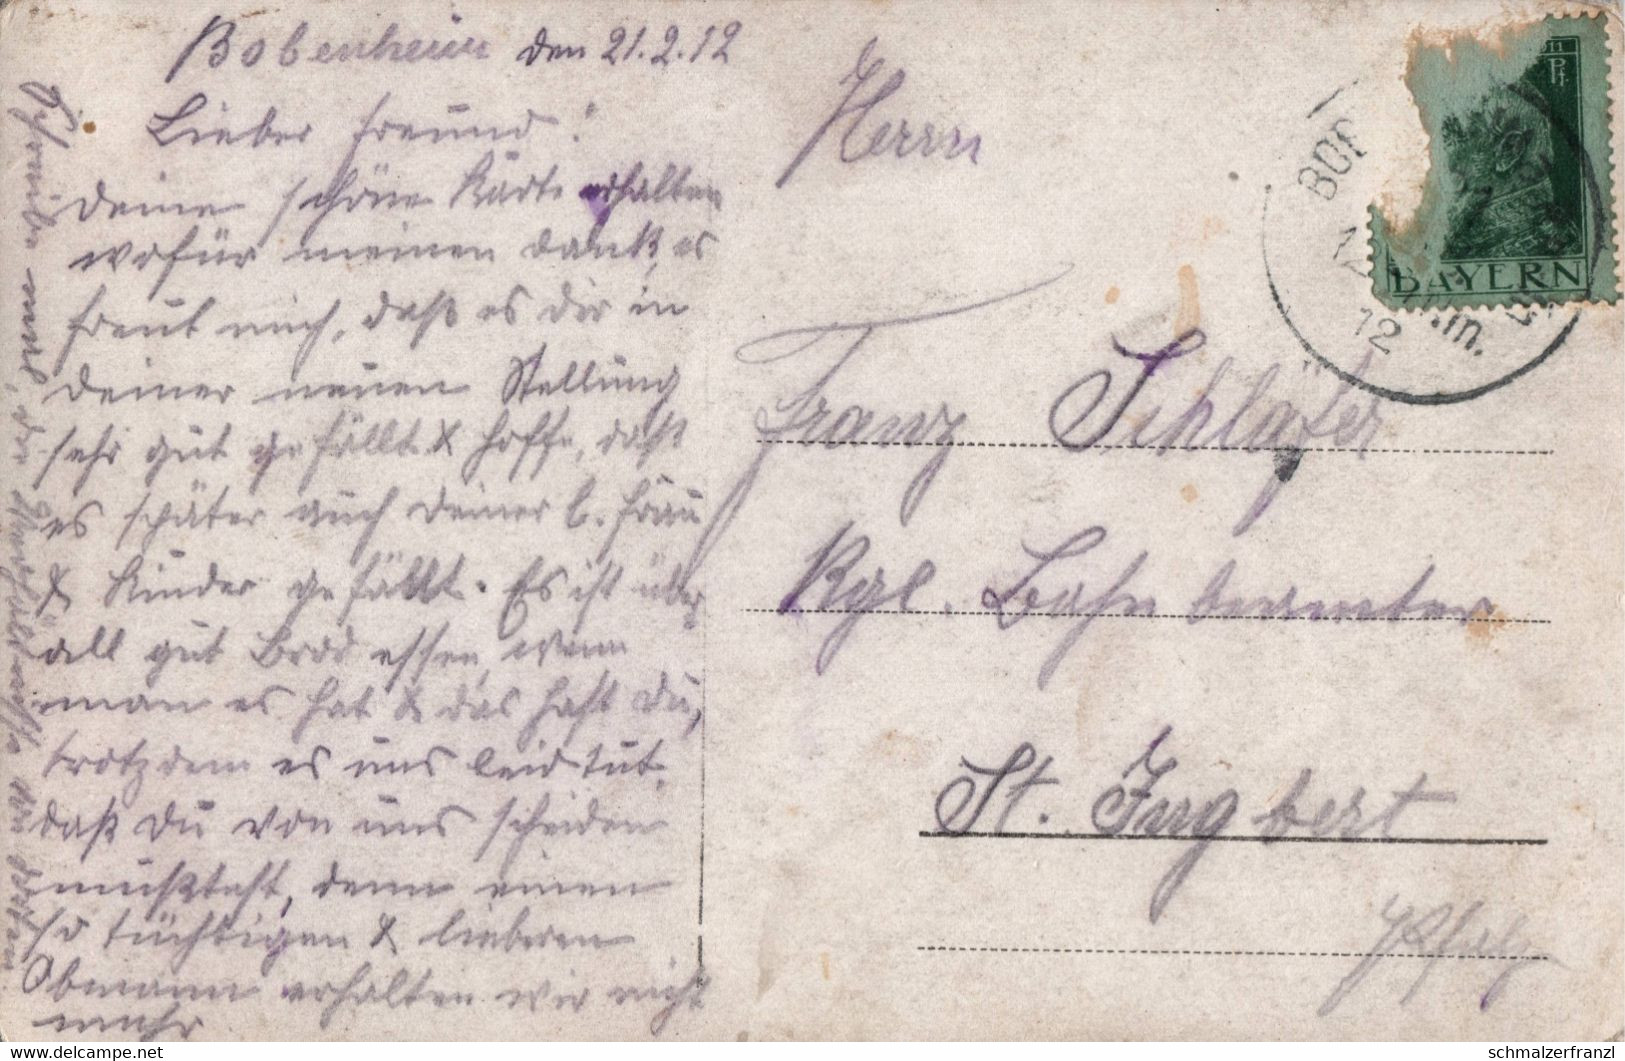 Bobenheim den 21.2.12
Lieber Freund!
Deine schöne Karte erhalten
wofür meinen Dank, es
freut mich, daß es dir in
deiner neuen Stellung
sehr gut gefällt & hoffe, daß
es später auch deiner l. Frau
& Kinder gefällt. Es ist über
all gut Brod essen, wenn
man es hat & das hast du,
trotzdem es uns leid tut,
daß du von uns scheiden
mußtest, denn einen
so tüchtigen & lieberen
Obmann erhalten wir nicht
mehr
Schreibe mal, die
Herrn
Franz Schläfer
Kgl. Bahnbeamter
St. Ingbert
Pfalz
Pf.
BAYERN
BOB
12
schmalzerfranzl
© www.delcampe.net